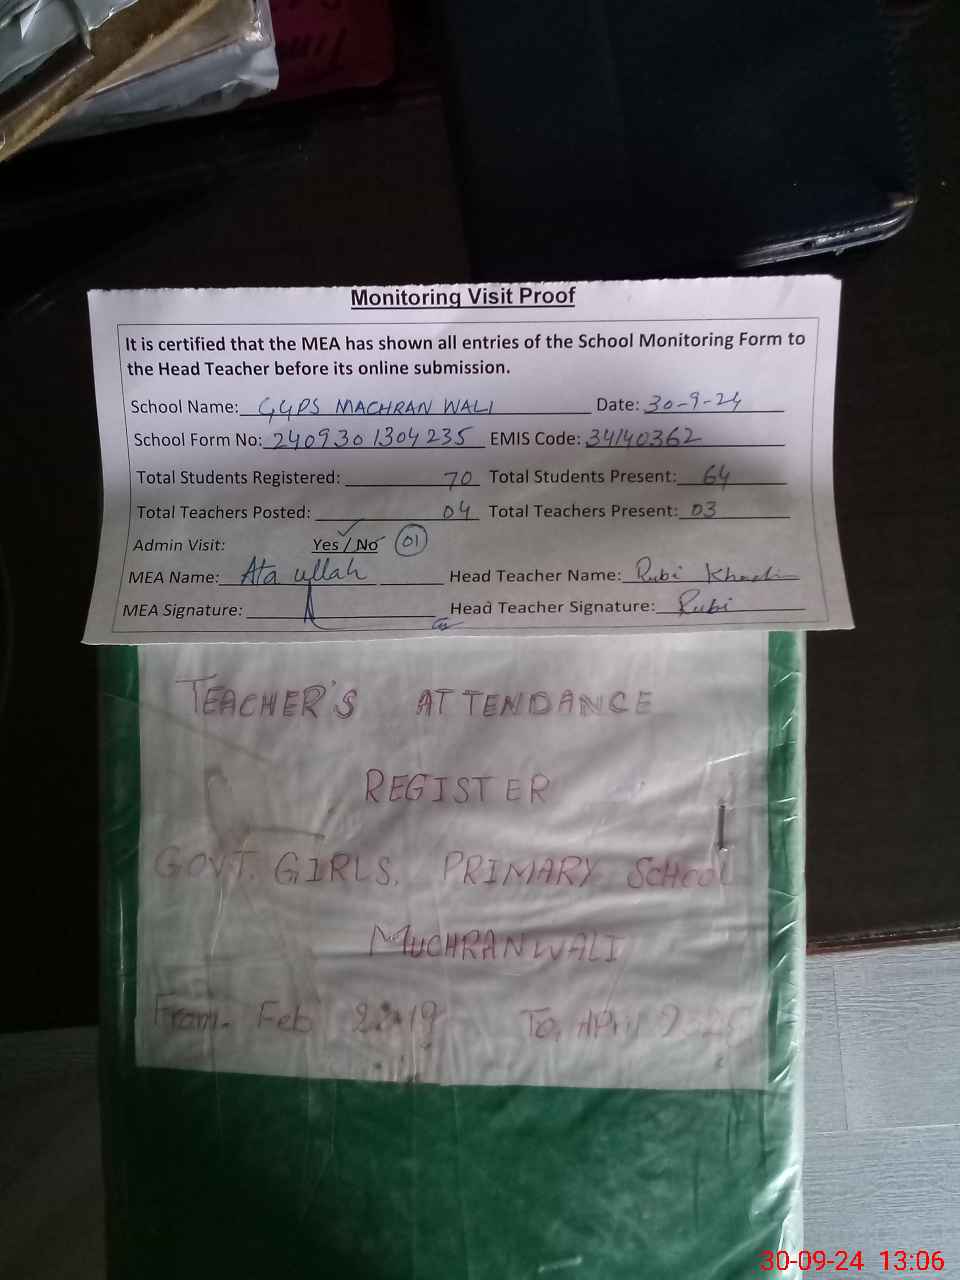 Monitoring Visit Proof
It is certified that the MEA has shown all entries of the School Monitoring Form to
the Head Teacher before its online submission.
School Name: GGPS MACHRAN WALI Date: 30-9-24
School Form No: 2409301304235 EMIS Code: 34140362
Total Students Registered: 70 Total Students Present: 64
Total Teachers Posted: 04 Total Teachers Present: 03
Admin Visit: Yes / No 01
MEA Name: Ata ullah Head Teacher Name: Rubi
MEA Signature: Head Teacher Signature: Rubi
TEACHER'S ATTENDANCE
REGISTER
GOVT. GIRLS. PRIMARY SCHOOL
MUCHRANWALI
From. Feb 2019 To, April 2025
30-09-24 13:06